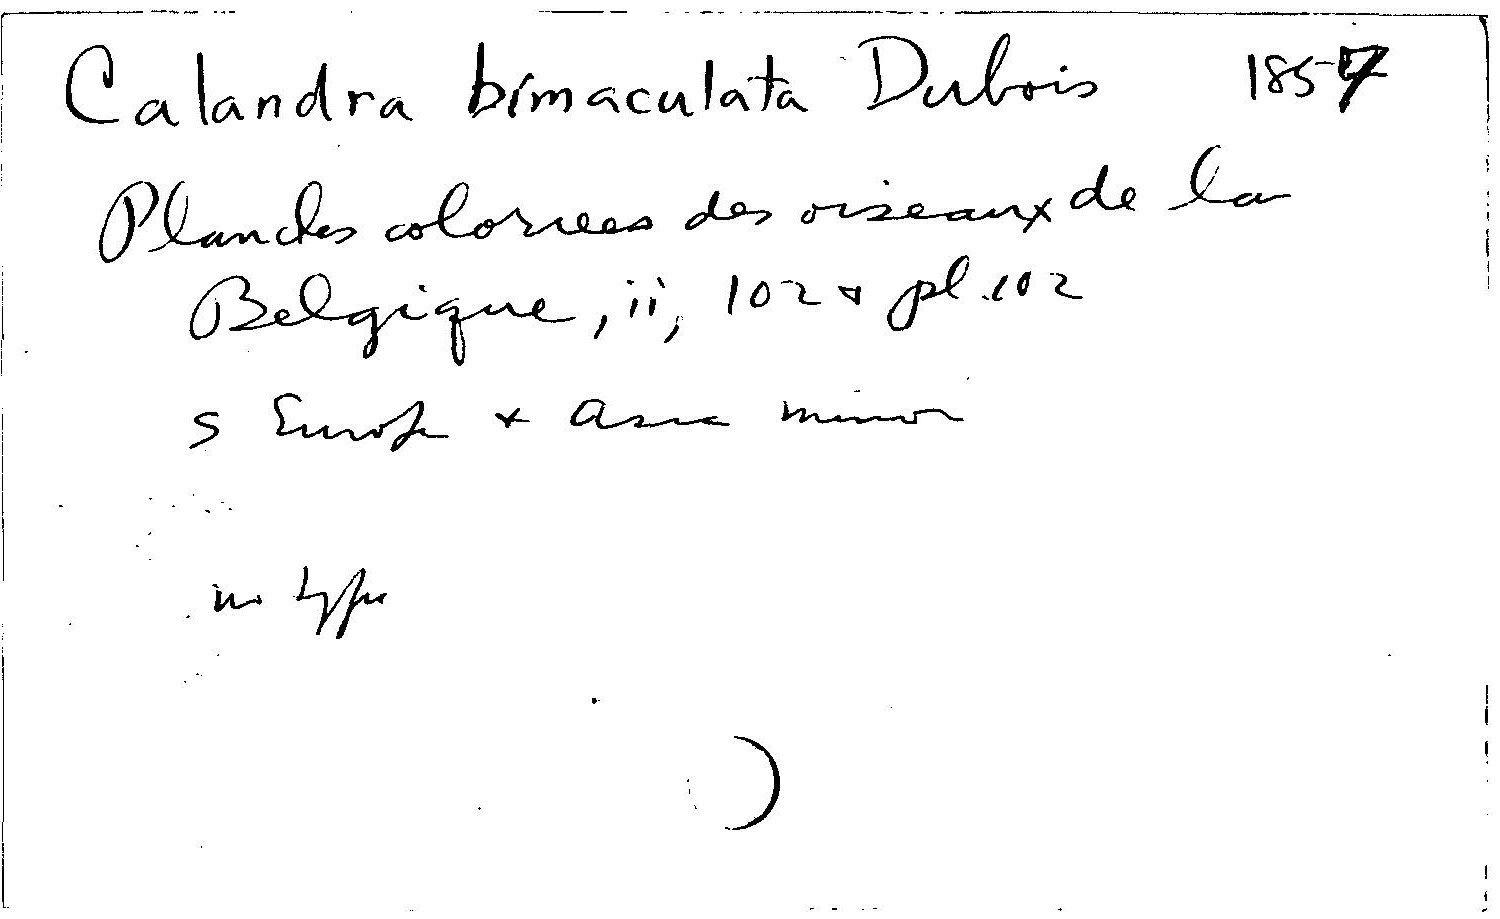 Calandra bimaculata Dubois 1857
Planches coloriees des oiseaux de la
Belgique, ii, 102 & pl. 102
S Europe & Asia minor
no type